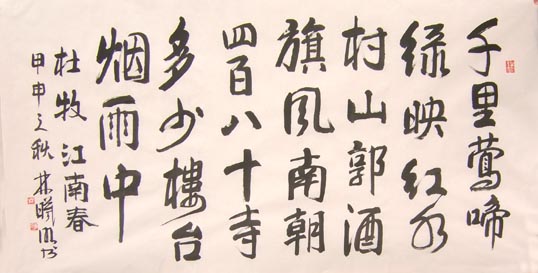 千里莺啼
绿映红水
村山郭酒
旗风南朝
四百八十寺
多少樓台
烟雨中
杜牧江南春
甲申之秋 林曦